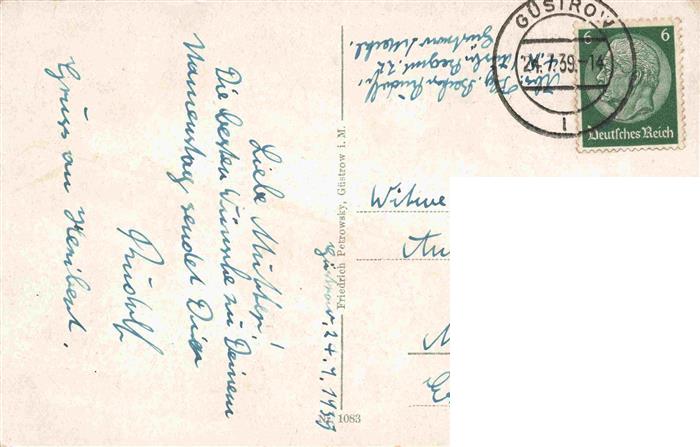 Liebe Mutter!
Die besten Wünsche zu Deinem
Namenstag sendet Dir
Rudolf
Gruss an Heribert.
Güstrow, 24.7.1939
Friedrich Petrowsky, Güstrow i. M.
Nr. 1083
Rudolf
Güstrow Meckl.
GÜSTROW
24.7.39.-14
1
6 6
Deutsches Reich
Witwe